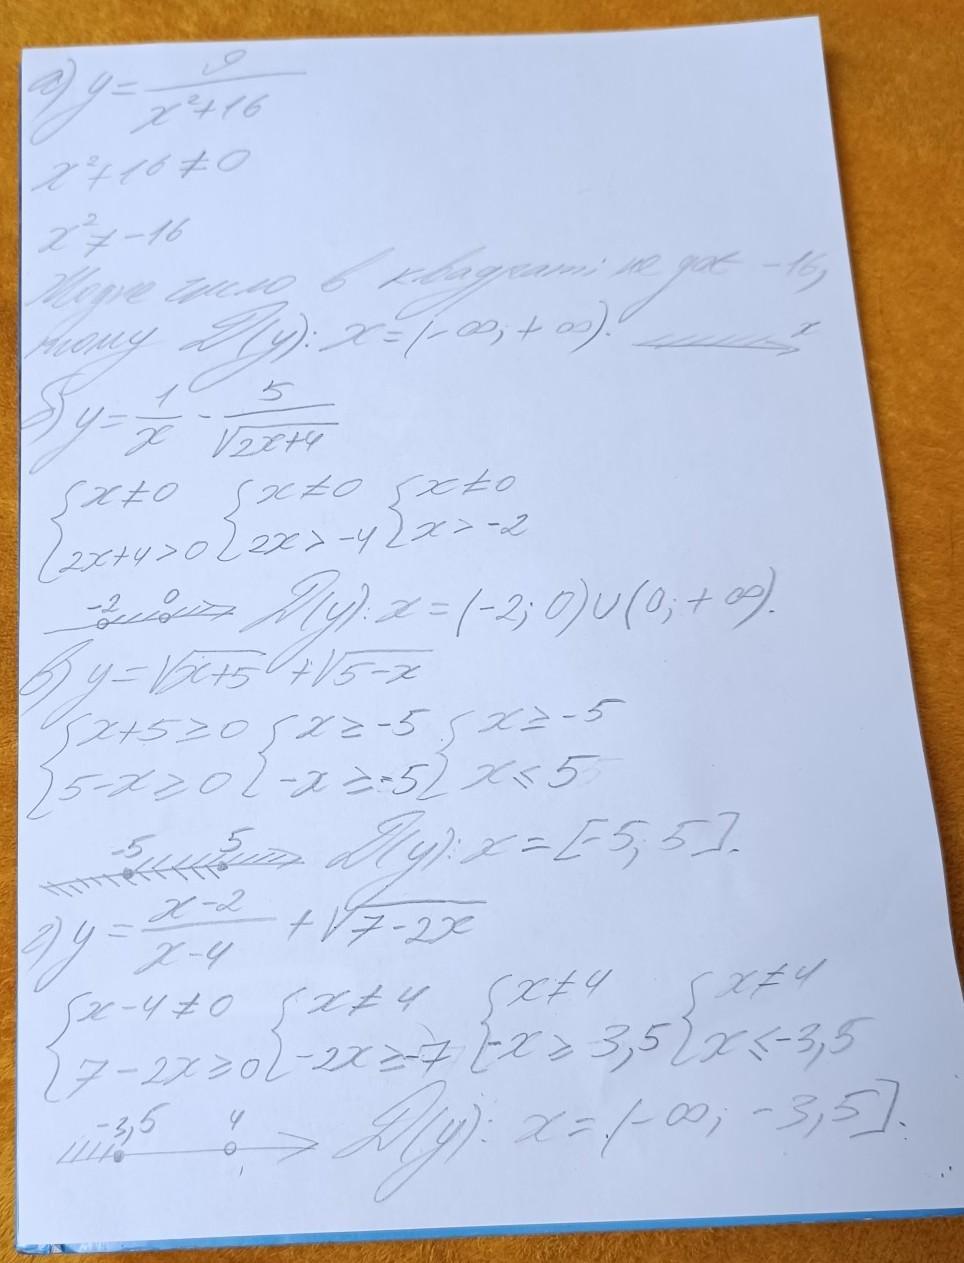 а) y = 9/(x²+16)
x²+16 ≠ 0
x² ≠ -16
Жодне число в квадраті не дає -16,
тому D(y): x = (-∞; +∞). x
б) y = 1/x - 5/√(2x+4)
{x ≠ 0 {x ≠ 0 {x ≠ 0
{2x+4 > 0 {2x > -4 {x > -2
-2 0 D(y): x = (-2; 0)∪(0; +∞).
в) y = √(x+5) + √(5-x)
{x+5 ≥ 0 {x ≥ -5 {x ≥ -5
{5-x ≥ 0 {-x ≥ -5 {x ≤ 5
-5 5 D(y): x = [-5; 5].
г) y = (x-2)/(x-4) + √(7-2x)
{x-4 ≠ 0 {x ≠ 4 {x ≠ 4 {x ≠ 4
{7-2x ≥ 0 {-2x ≥ -7 {-x ≥ 3,5 {x ≤ -3,5
-3,5 4 D(y): x = (-∞; -3,5].